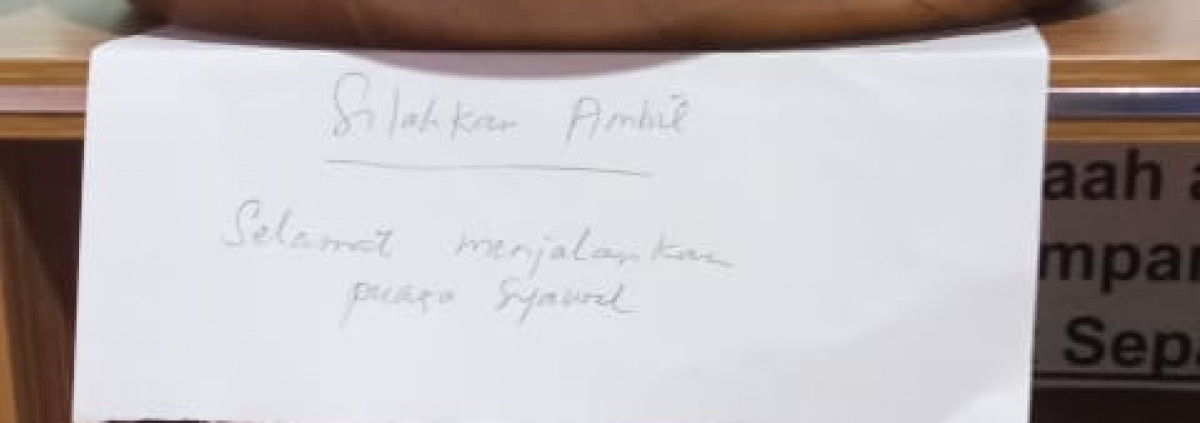 Silahkan Ambil
Selamat menjalankan
puasa Syawal
aah a
mpar
Sepa